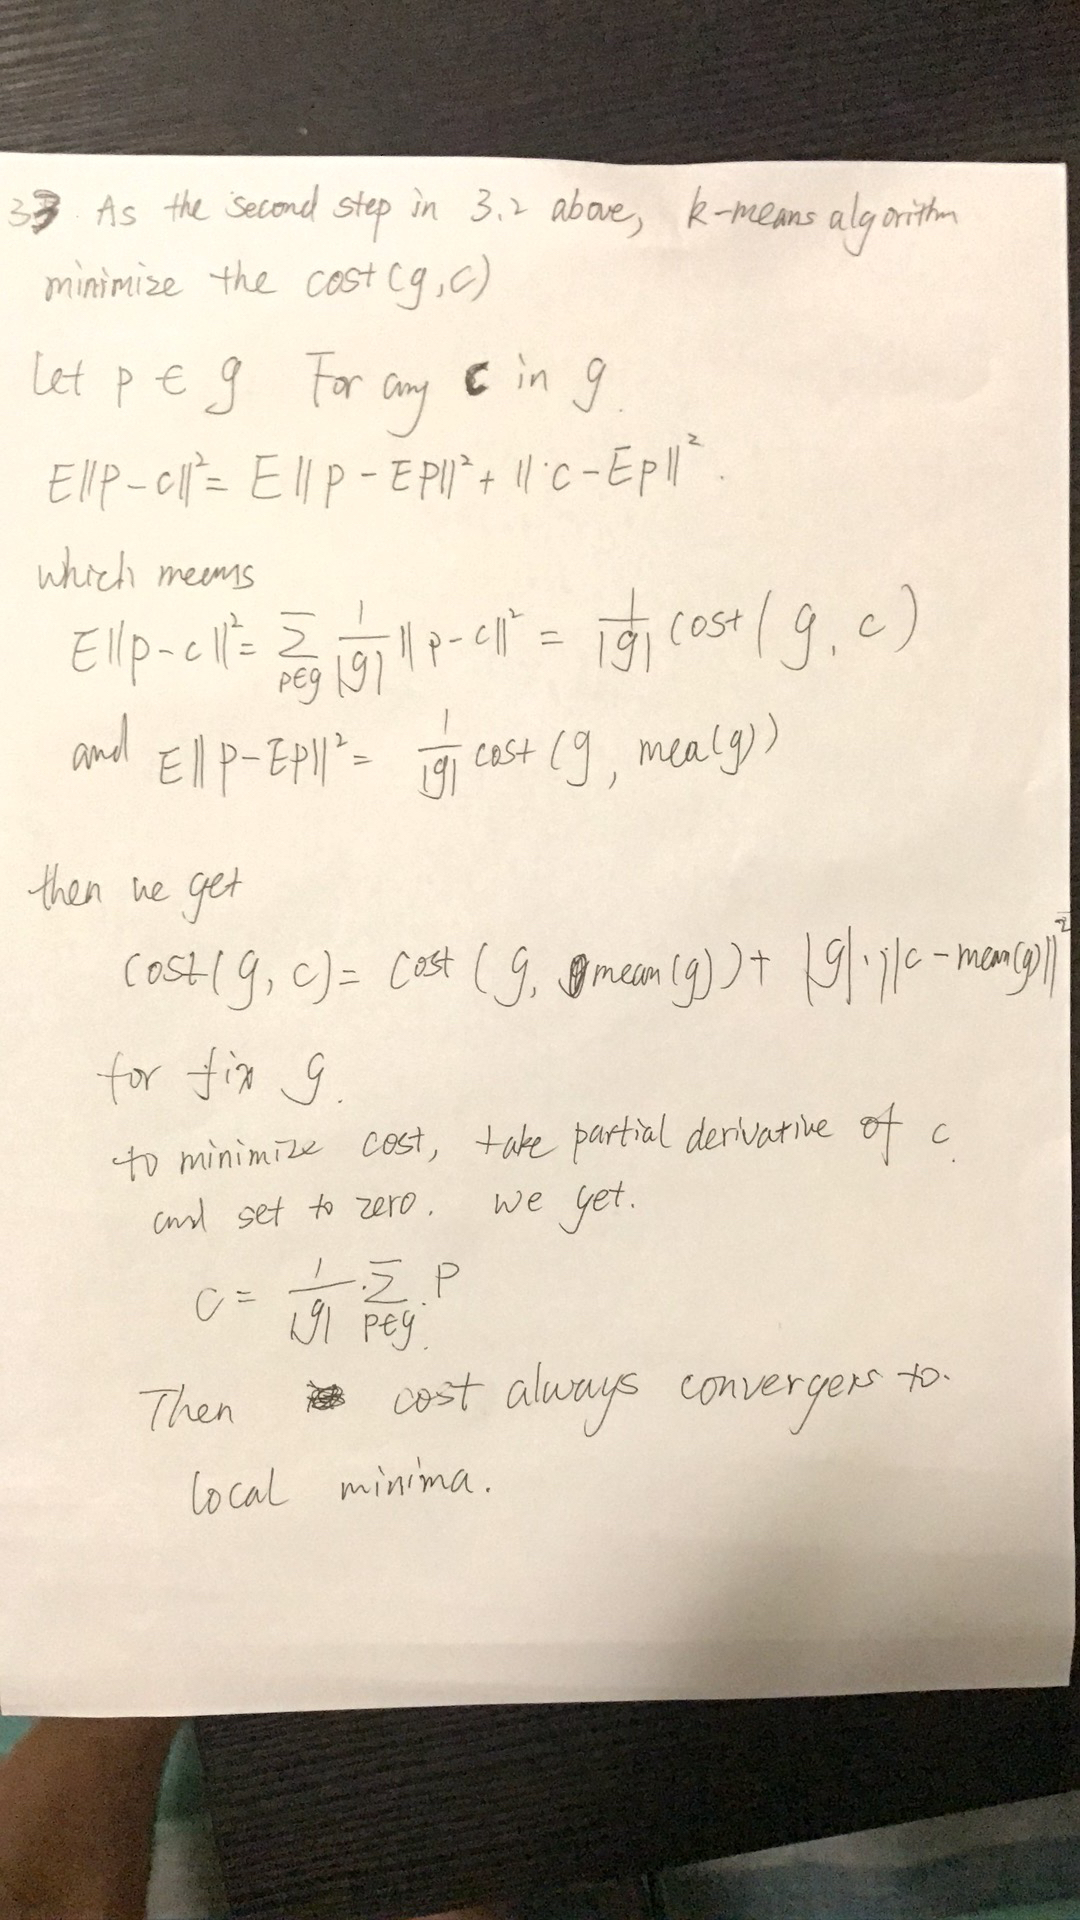 33. As the second step in 3.2 above, k-means algorithm
minimize the cost(g,c)
Let p ∈ g For any c in g.
E||P-c||²= E||p-EP||²+ ||c-Ep||².
which means
E||p-c||²= Σ_{p∈g} 1/|g| ||p-c||² = 1/|g| cost(g, c)
and E||p-Ep||²= 1/|g| cost(g, mea(g))
then we get
cost(g, c)= cost(g, mean(g))+ |g|·||c-mean(g)||²
for fix g.
to minimize cost, take partial derivative of c.
and set to zero. we get.
c= 1/|g| · Σ_{p∈g} P
Then cost always convergers to.
local minima.